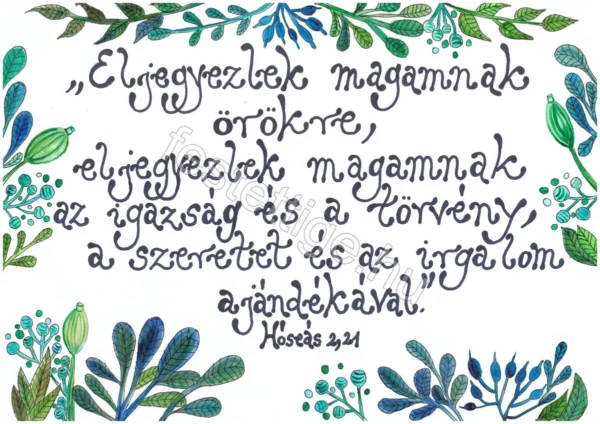 „Eljegyezlek magamnak
örökre,
eljegyezlek magamnak
az igazság és a törvény,
a szeretet és az irgalom
ajándékával.”
Hóseás 2,21
festettige.hu